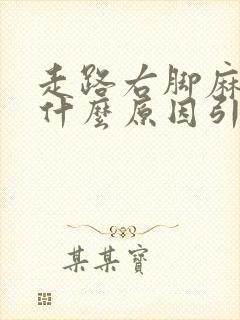 走路右脚麻
什麼原因引
某某寶